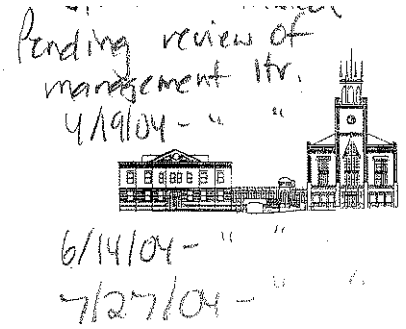 Pending review of
management ltr.
4/19/04 - " "
6/14/04 - " "
7/27/04 - " "